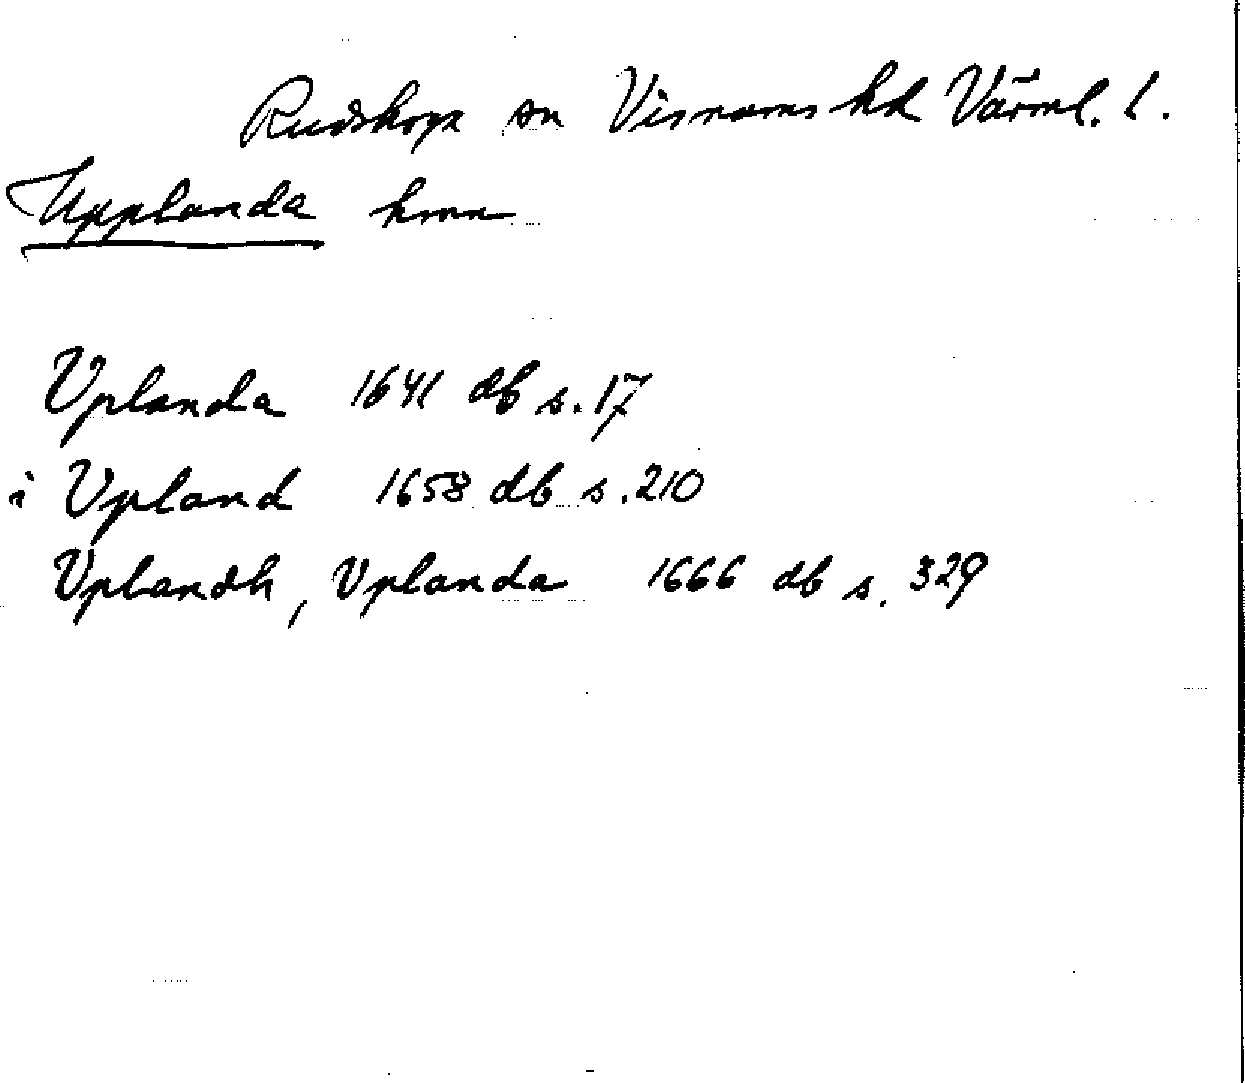 Rudskoga sn Visnums hd Värml. l.
Upplanda hmn
Vplanda 1641 db s. 17
i Vpland 1658 db s. 210
Vplandh, Vplanda 1666 db s. 329